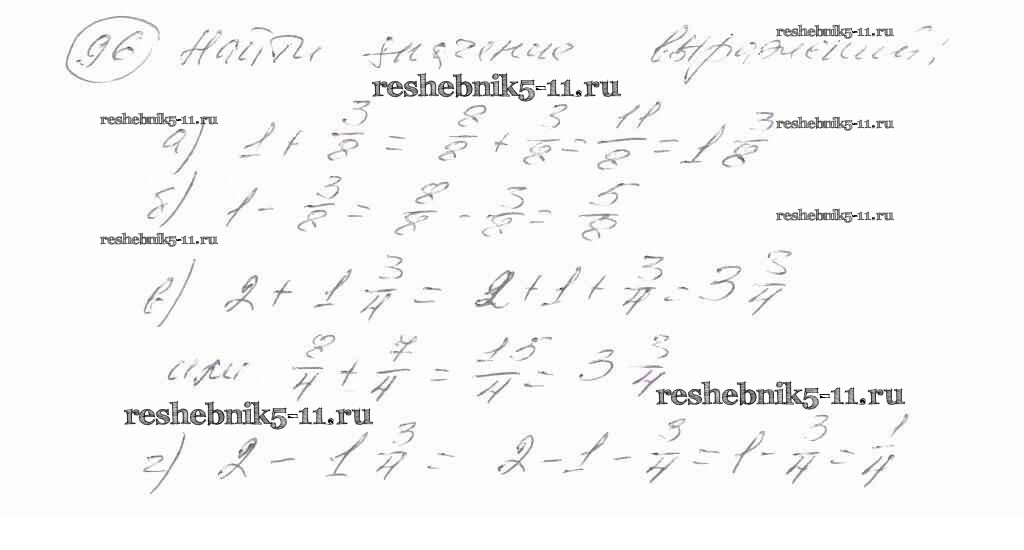 96 Найти значение выражений:
reshebnik5-11.ru
reshebnik5-11.ru
reshebnik5-11.ru
reshebnik5-11.ru
а) 1 + 3/8 = 8/8 + 3/8 = 11/8 = 1 3/8
б) 1 - 3/8 = 8/8 - 3/8 = 5/8
reshebnik5-11.ru
reshebnik5-11.ru
в) 2 + 1 3/4 = 2 + 1 + 3/4 = 3 3/4
или 8/4 + 7/4 = 15/4 = 3 3/4
reshebnik5-11.ru
reshebnik5-11.ru
г) 2 - 1 3/4 = 2 - 1 - 3/4 = 1 - 3/4 = 1/4